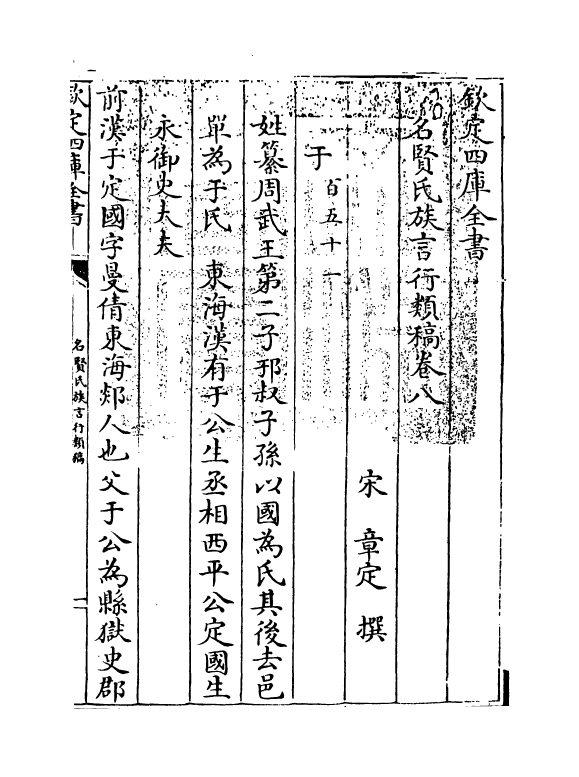 欽定四庫全書
名賢氏族言行類稿卷八
宋 章定 撰
于 百五十一
姓纂周武王第二子邘叔子孫以國為氏其後去邑
單為于氏 東海漢有于公生丞相西平公定國生
永御史大夫
前漢于定國字曼倩東海郯人也父于公為縣獄史郡
欽定四庫全書
名賢氏族言行類稿
一